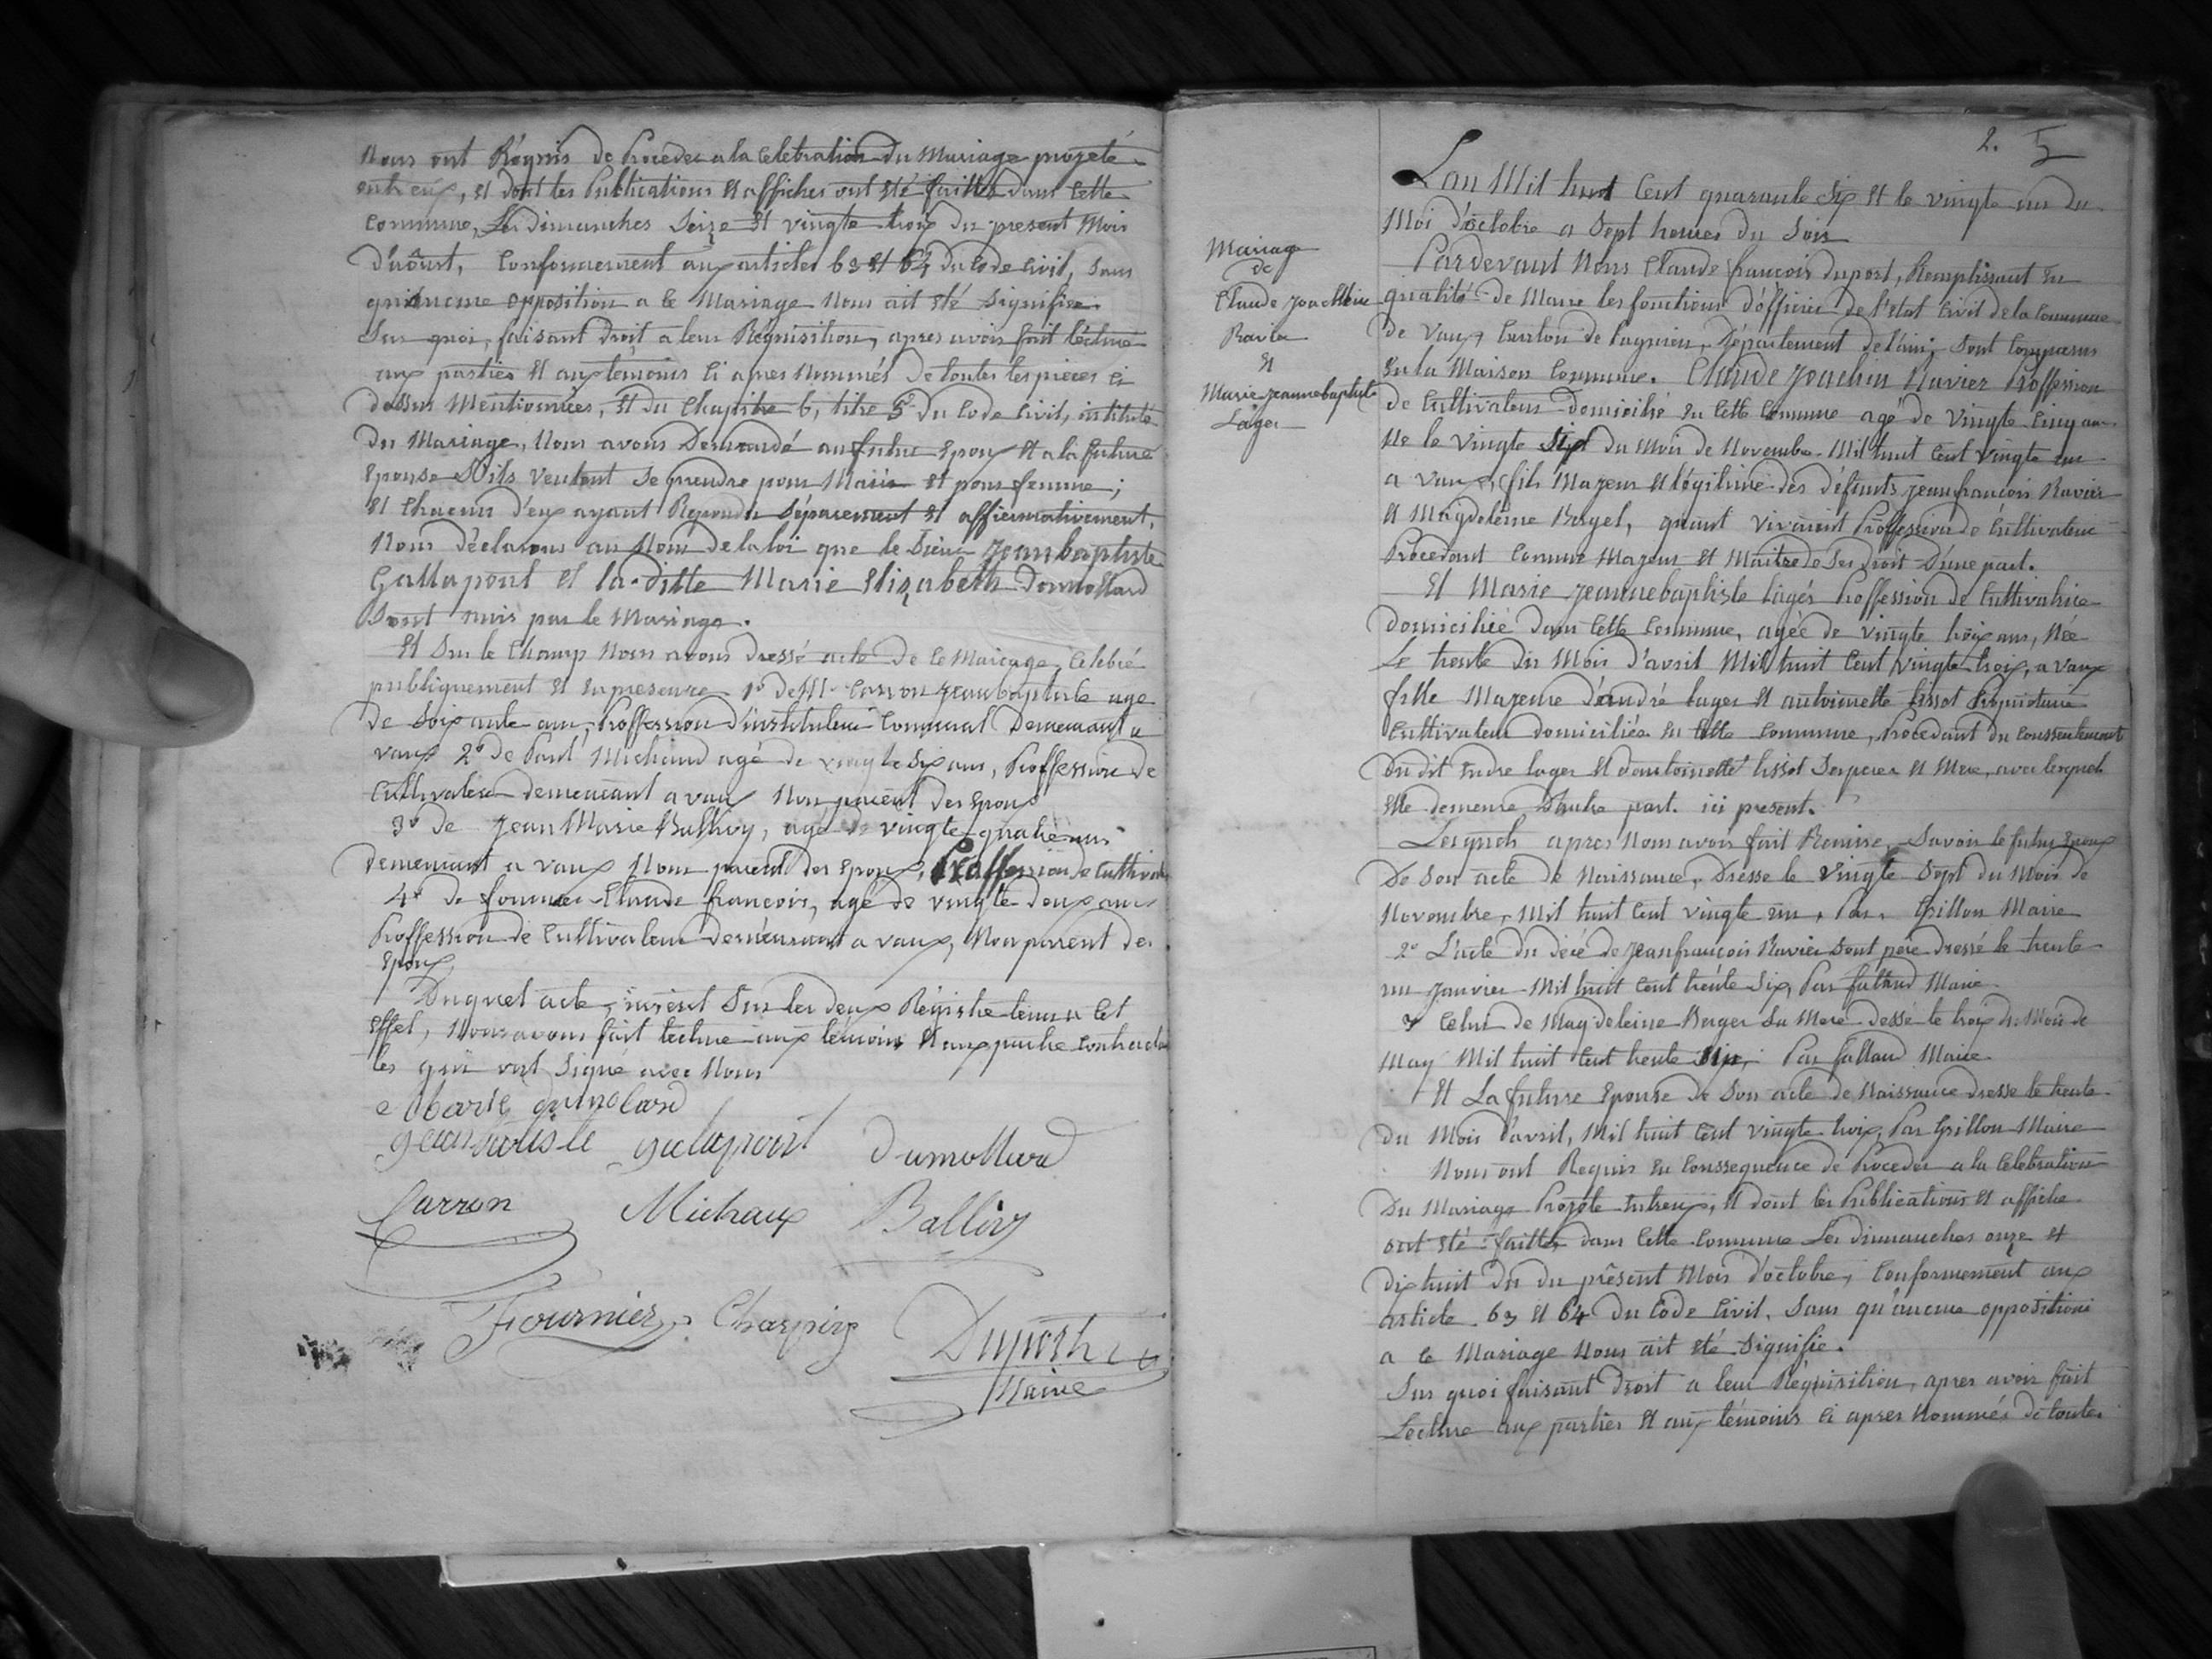 Nous ont Réquis de Proceder a la Celebration du Mariage projeté
entreux, et dont les Publications et affiches ont été faittes dans Cette
Commune, Les dimanches Seize et vingte trois du present Mois
d'aôust, Conformement aux articles 63 et 64 du Code Civil, Sans
qu'aucune opposition a ce Mariage Nous ait été Signifiée
Sur quoi, faisant droit a leur Réquisition, apres avoir fait lecture
aux parties et aux temoins Ci apres Nommés de toutes les pieces Ci
dessus Mentionnées, et du Chapitre 6, titre 5e du Code Civil, intitulé
du Mariage, Nous avons Demandé au futur Epoux et a la future
Epouse S'ils veulent Se prendre pour Mari et pour femme;
et Chacun d'eux ayant Repondu Séparement et affirmativement,
Nous déclarons au Nom de la loi que le Sieur Jean baptiste
Gallapont et la ditte Marie Elizabeth Dumollard
Sont unis par le Mariage.
Et Sur le Champ Nous avons dressé acte de Ce Mariage, Celebré
publiquement et en presence 1o de Mr Carron Jean baptiste age
de Soixante ans, Proffession d'instituteur Communal Demeurant a
vaux 2o de Paul Michaud agé de vingte Six ans, Proffession de
Cultivateur demeurant a vaux Non parent des Epoux
3o de Jean Marie Ballivy, agé de vingte quatre ans
demeurant a vaux Non parent des Epoux, Proffession de Cultivat
4o de fournier Claude francois, agé de vingte deux ans
Proffession de Cultivateur demeurant a vaux, Non parent des
Epoux
Duquel acte, inserit Sur les deux Régistre tenu a Cet
Effet, Nous avons fait lecture aux témoins et aux partie Contracta
tes qui ont Signé avec Nous
Marie dumolard
jean batiste galapont Dumollard
Carron Michaux Ballivy
Fournier Charpiy Duport
Maire
2. 5
Mariage
de
Claude Joachin
Ravier
et
Marie Jeanne baptiste
Lager
L'an Mil huit Cent quarante Six et le vingte un du
Moi d'octobre a Sept heures du Soir
Pardevant Nous Claude francois duport, Remplissant en
qualité de Maire les fonctions d'officier de l'etat Civil de la Commune
de Vaux Canton de Lagnieu, Département de l'ain, Sont Comparus
en la Maison Commune. Claude Joachin Ravier Proffession
de Cultivateur domicilié en Cette Commune agé de vingte Cinq ans
Né le vingte Sept du Mois de Novembre Mil huit Cent vingte un
a vaux, fils Majeur et légitime des défunts jean francois Ravier
et Magdeleine Berger, quant vivaient Proffession de Cultivateur
Procedant Comme Majeur et Maitre de Ses droit d'une part.
Et Marie Jeanne baptiste lager Proffession de Cultivatrice
Domiciliée dans Cette Commune, agée de vingte trois ans, Née
Le trente du Mois d'avril Mil huit Cent vingte trois, a vaux
fille Majeure d'andré lager et antoinette tissot Propriétaire
Cultivateur domiciliés en Cette Commune, Procedant du Consentement
du dit andre lager et d'antoinette tissot Ses pere et Mere, avec lesquels
Elle demeure d'autre part. ici present.
Lesquels apres Nous avoir fait Remise, Savoir le futur Epoux
De Son acte de Naissance, Dressé le vingte Sept du Mois de
Novembre, Mil huit Cent vingte un, Par Grillon Maire
2o L'acte du décé de Jean francois Ravier Sont père dressé le trente
un Janvier Mil huit Cent trente Six, Par falland Maire
3 Celui de Magdeleine Berger Sa Mere dessé le trois du Mois de
May Mil huit Cent trente Six, Par falland Maire
Et La future Epouse de Son acte de Naissance dresse le trente
du Mois d'avril, Mil huit Cent vingte trois, Par Grillon Maire
Nous ont Requis en Conssequence de Proceder a la Celebration
du Mariage Projeté entreux, et dont les Publications et affiche
ont été faittes dans Cette Commune Les dimanches onze et
dix huit du du présent Mois d'octobre, Conformement aux
article 63 et 64 du Code Civil, Sans qu'aucune opposition
a Ce Mariage Nous ait été Signifie.
Sur quoi faisant Droit a leur Réquisition, apres avoir fait
Lecture aux parties et aux témoins Ci apres Nommés de toutes